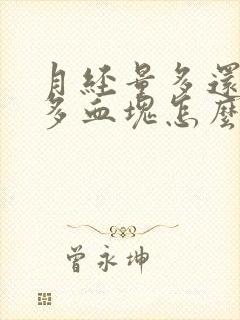 月經量多還
多血塊怎麼
曾永坤